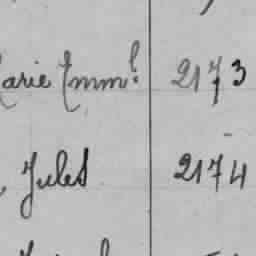 Marie Emm.l 2173
, Jules 2174